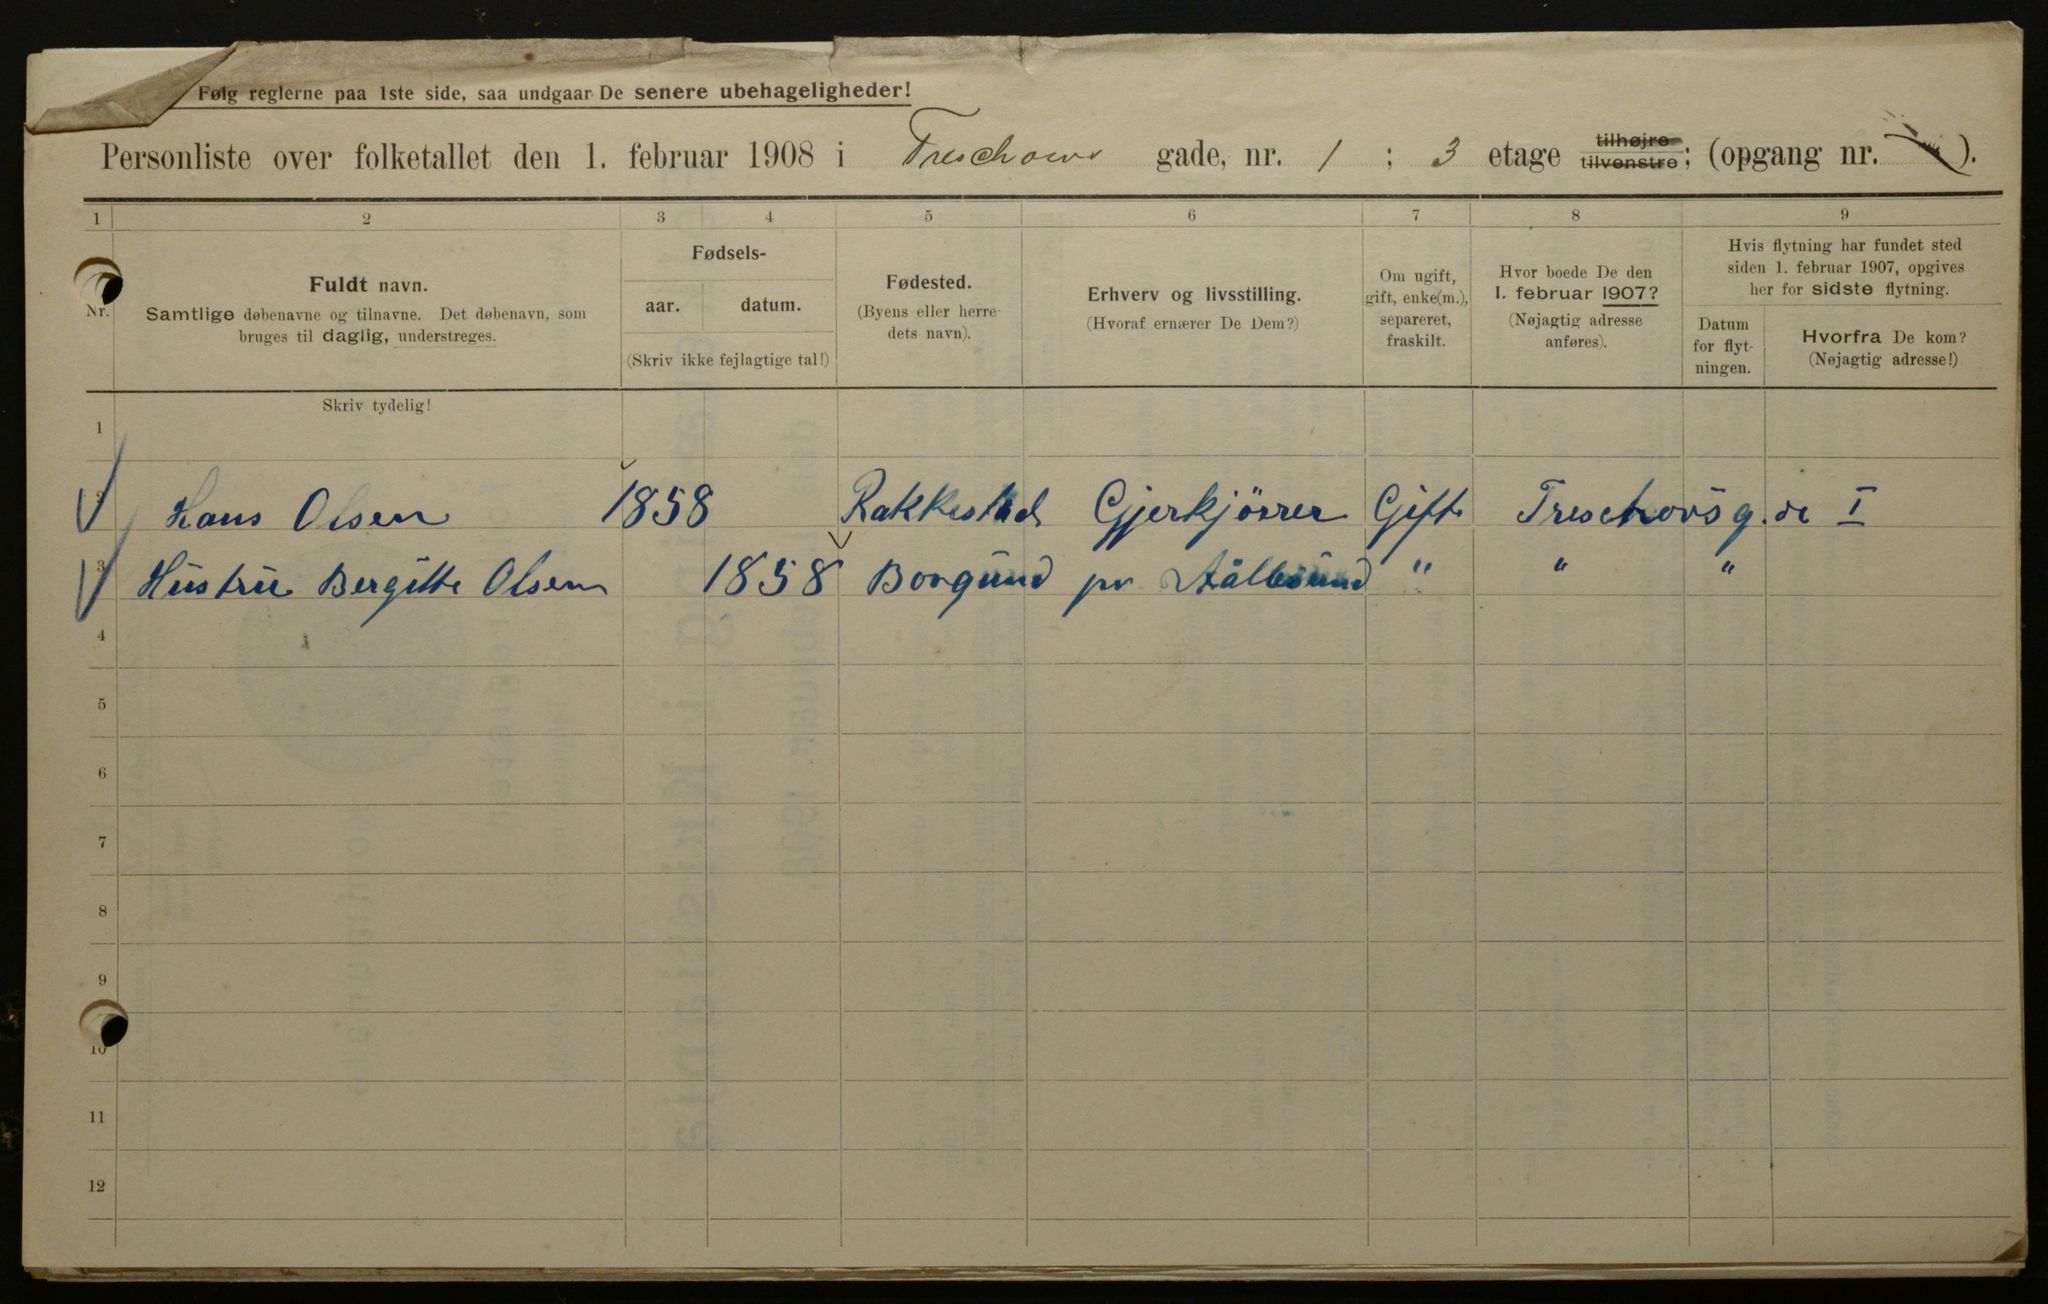 Følg reglerne paa 1ste side, saa undgaar De senere ubehageligheder!
Personliste over folketallet den 1. februar 1908 i Treschows gade, nr. 1 ; 3 etage tilhøjre tilvenstre; (opgang nr. ).
1 2 3 4 5 6 7 8 9
Nr.
Fuldt navn.
Samtlige døbenavne og tilnavne. Det døbenavn, som
bruges til daglig, understreges.
Fødsels-
aar. datum.
(Skriv ikke fejlagtige tal!)
Fødested.
(Byens eller herre-
dets navn).
Erhverv og livsstilling.
(Hvoraf ernærer De Dem?)
Om ugift,
gift, enke(m.),
separeret,
fraskilt.
Hvor boede De den
1. februar 1907?
(Nøjagtig adresse
anføres).
Hvis flytning har fundet sted
siden 1. februar 1907, opgives
her for sidste flytning.
Datum
for flyt-
ningen.
Hvorfra De kom?
(Nøjagtig adresse!)
Skriv tydelig!
1
2 Hans Olsen 1858 Rakkestad Gjerkjörer Gift Treschovsg. I
3 Hustru Bergitte Olsen 1858 Borgund pr Aålesund " " "
4
5
6
7
8
9
10
11
12